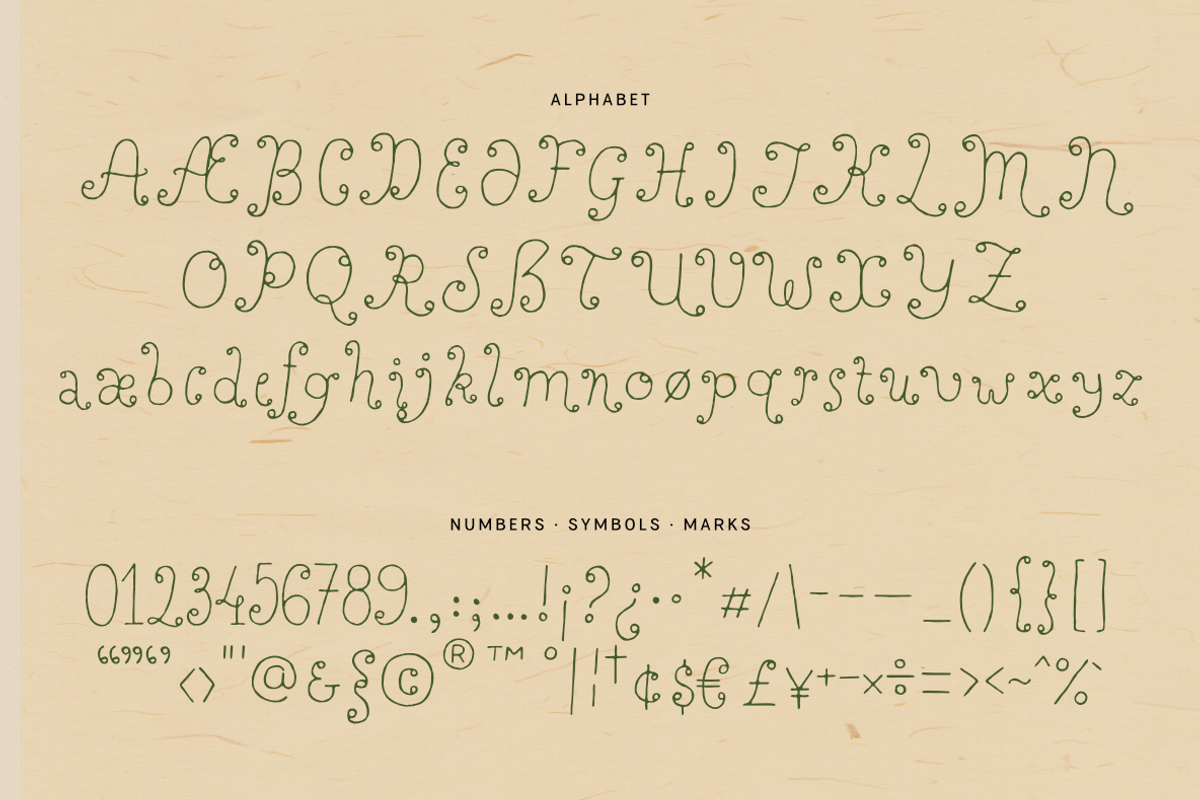 ALPHABET
AÆBCDEƏFGHIJKLMN
OPQRSẞTUVWXYZ
aæbcdefghijklmnoøpqrstuvwxyz
NUMBERS · SYMBOLS · MARKS
0123456789.,:;…!¡?¿·•*#/\-–—_(){}[]
“”‘’‹›"'@&§©®™°|¦†¢$€£¥+−×÷=><~^%`